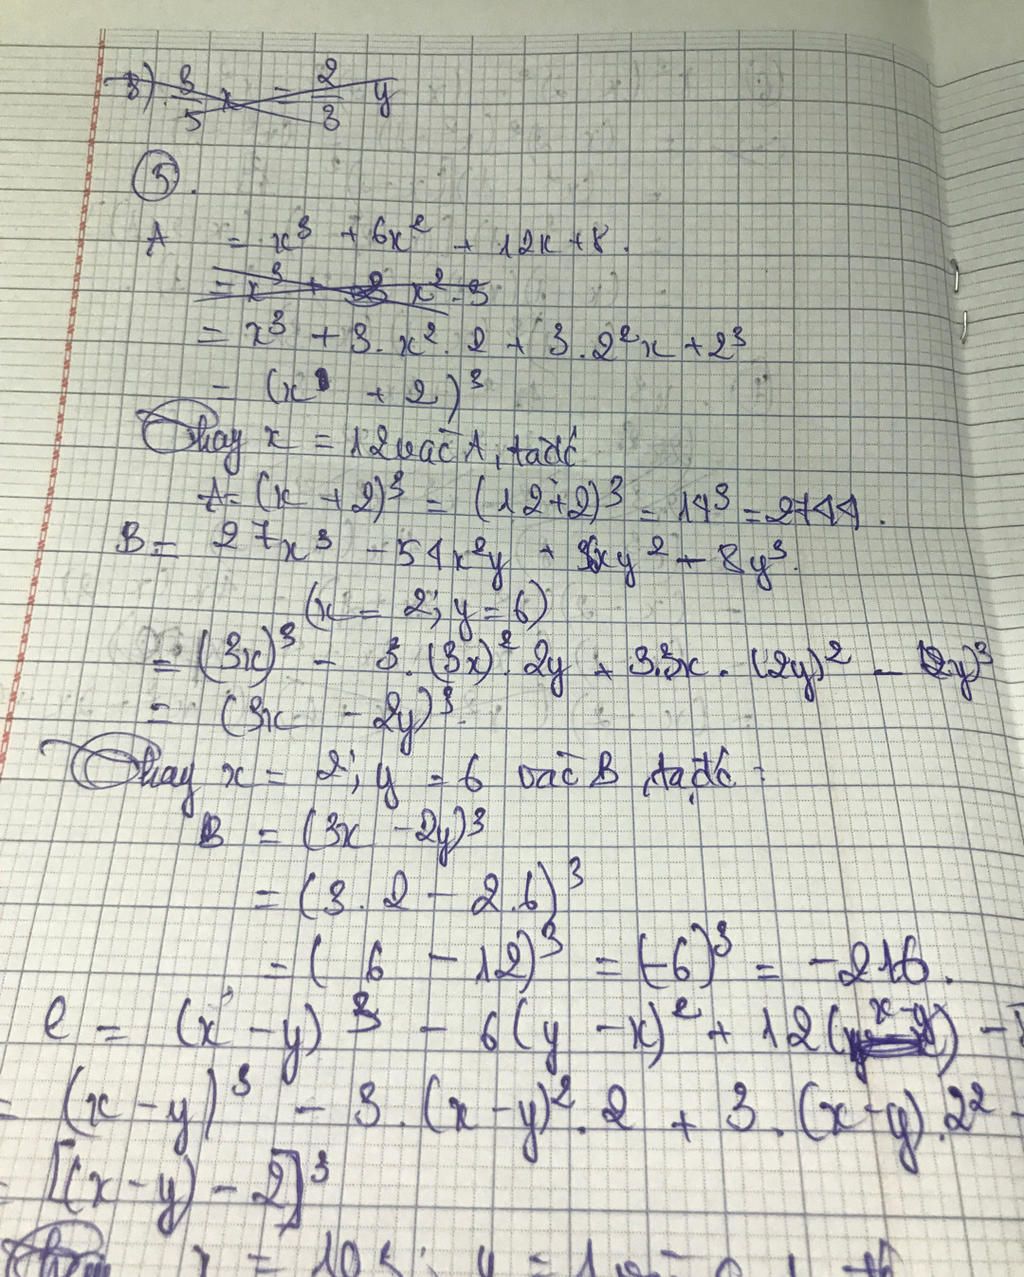 3) 3/5 x = 2/3 y
(3).
A = x³ + 6x² + 12x + 8.
= x³ + 3 x² . 3
= x³ + 3. x². 2 + 3. 2²x + 2³
= (x + 2)³
Thay x = 12 vào A, ta đc
A = (x + 2)³ = (12+2)³ = 14³ = 2744.
B = 27x³ - 54x²y + 36xy² - 8y³.
(x = 2; y = 6)
= (3x)³ - 3. (3x)². 2y + 3.3x. (2y)² - (2y)³
= (3x - 2y)³.
Thay x = 2; y = 6 vào B, ta đc :
B = (3x - 2y)³
= (3. 2 - 2.6)³
= ( 6 - 12)³ = (-6)³ = -216.
C = (x - y)³ - 6(y - x)² + 12(x-y) -
= (x - y)³ - 3. (x - y)². 2 + 3. (x-y). 2² -
= [(x - y) - 2]³